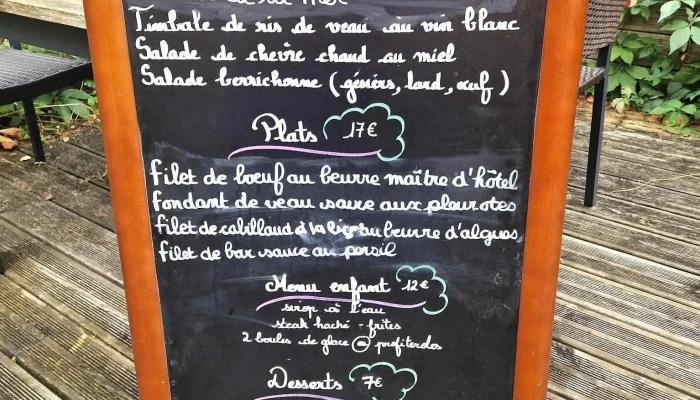 Timbale de ris de veau au vin blanc
Salade de chèvre chaud au miel
Salade berrichonne (gésiers, lard, œuf)
Plats 17€
filet de bœuf au beurre maître d'hôtel
fondant de veau sauce aux pleurotes
filet de cabillaud à la au beurre d'algues
filet de bar sauce au persil
Menu enfant 12€
sirop à l'eau
steak haché - frites
2 boules de glace ou profiteroles
Desserts 7€